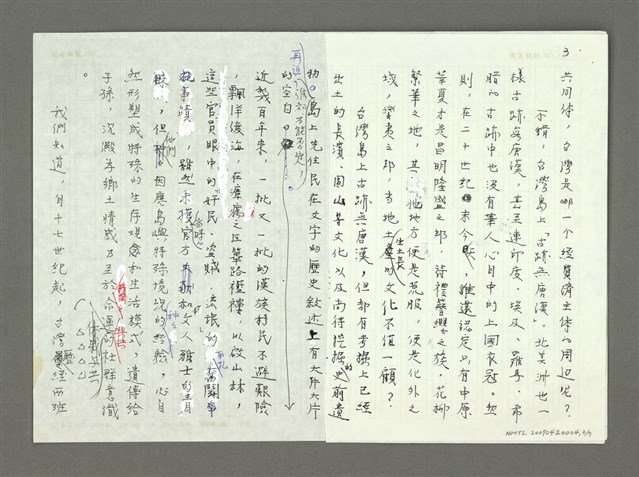 3
共同体，台湾是哪一个經貿濟主体的周边呢？
不錯，台灣島上「古跡無唐漢」，北美洲也一
樣古跡無唐漢，甚至連印度、埃及、羅馬、希
臘的古跡中也沒有華人心目中的上國衣冠。然
則，在二十世紀末今天，誰還認定只有中原
華夏才是昌明隆盛之邦，詩禮簪纓之族，花柳
繁華之地，其他地方便是荒服，便是化外之
域，蠻夷之邦，當地土生土長的文化不值一顧？
台灣島上古跡無唐漢，但卻有考據上已經
出土的長濱、圓山等文化以及尚待挖掘的史前遺
物。島上先住民在文字的歷史敘述上有大片大片
的空白。
再說，誰都不能否定，
近幾百年來，一批又一批的漢族村民不避艱險
，飄洋渡海，在瘴癘之區篳路藍褸，以啟山林，
這些官員眼中的「奸民、盜賊、流氓」的奮鬥
事蹟，雖然未獲官方
文人雅士的青目
，但他們因應島嶼特殊境況的經驗，必自
然形塑成特殊的生存觀念和生活模式，遺傳給
子孫，沉澱為鄉土情感乃至於命運的社群意識
。
我們知道，自十七世紀起，台灣歷經西班
NMTL 20090420004,4/9